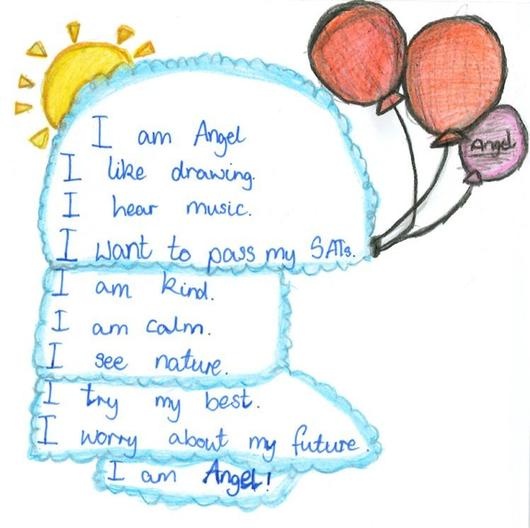 I am Angel
I like drawing.
I hear music.
I want to pass my SATs.
I am kind.
I am calm.
I see nature.
I try my best.
I worry about my future.
I am Angel!
Angel